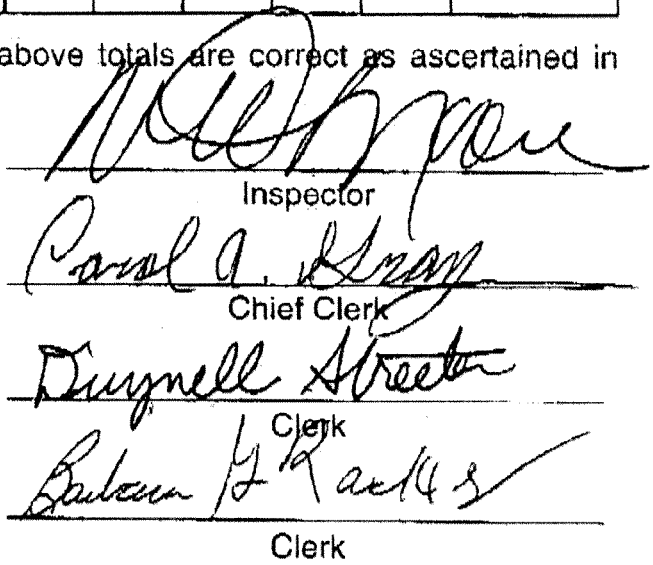 above totals are correct as ascertained in
Inspector
Carol A. Gray
Chief Clerk
Dwynell Streeter
Clerk
Barbara
Clerk